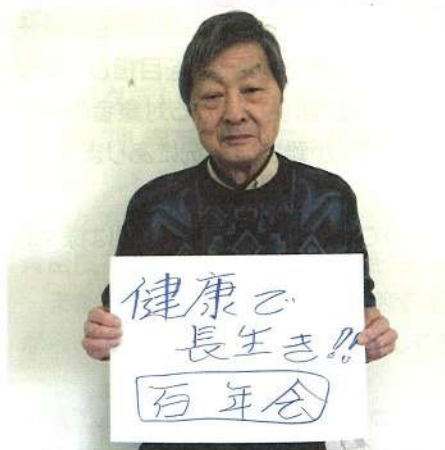 健康で
長生き!!
百年会